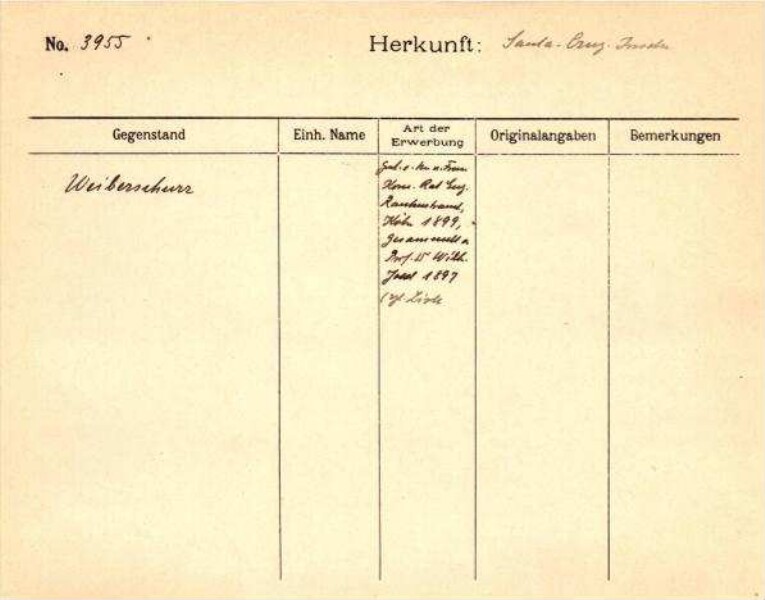 No. 3955
Herkunft: Santa-Cruz-Inseln
Gegenstand
Einh. Name
Art der
Erwerbung
Originalangaben
Bemerkungen
Weiberschurz
Kom. Rat Eug.
Rautenstrauch,
Köln 1899,
gesammelt v.
Prof. Dr Wilh.
Joest 1897
(vgl. Liste